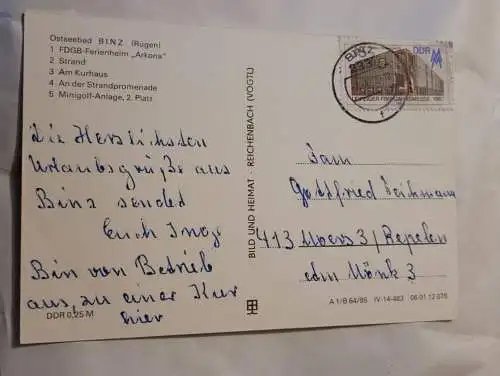 Ostseebad BINZ (Rügen)
1 FDGB-Ferienheim „Arkona"
2 Strand
3 Am Kurhaus
4 An der Strandpromenade
5 Minigolf-Anlage, 2. Platz
Die Herzlichsten
Urlaubsgrüße aus
Binz sendet
Euch Inge
Bin von Betrieb
aus, zu einer Kur
hier
DDR 0,25 M
BILD UND HEIMAT · REICHENBACH (VOGTL)
BINZ
DDR
LEIPZIGER FRÜHJAHRSMESSE 1987
Fam
Gottfried Teichmann
413 Moers 3/Repelen
Mönk 3
A 1/B 64/86 IV-14-483 06 01 12 076